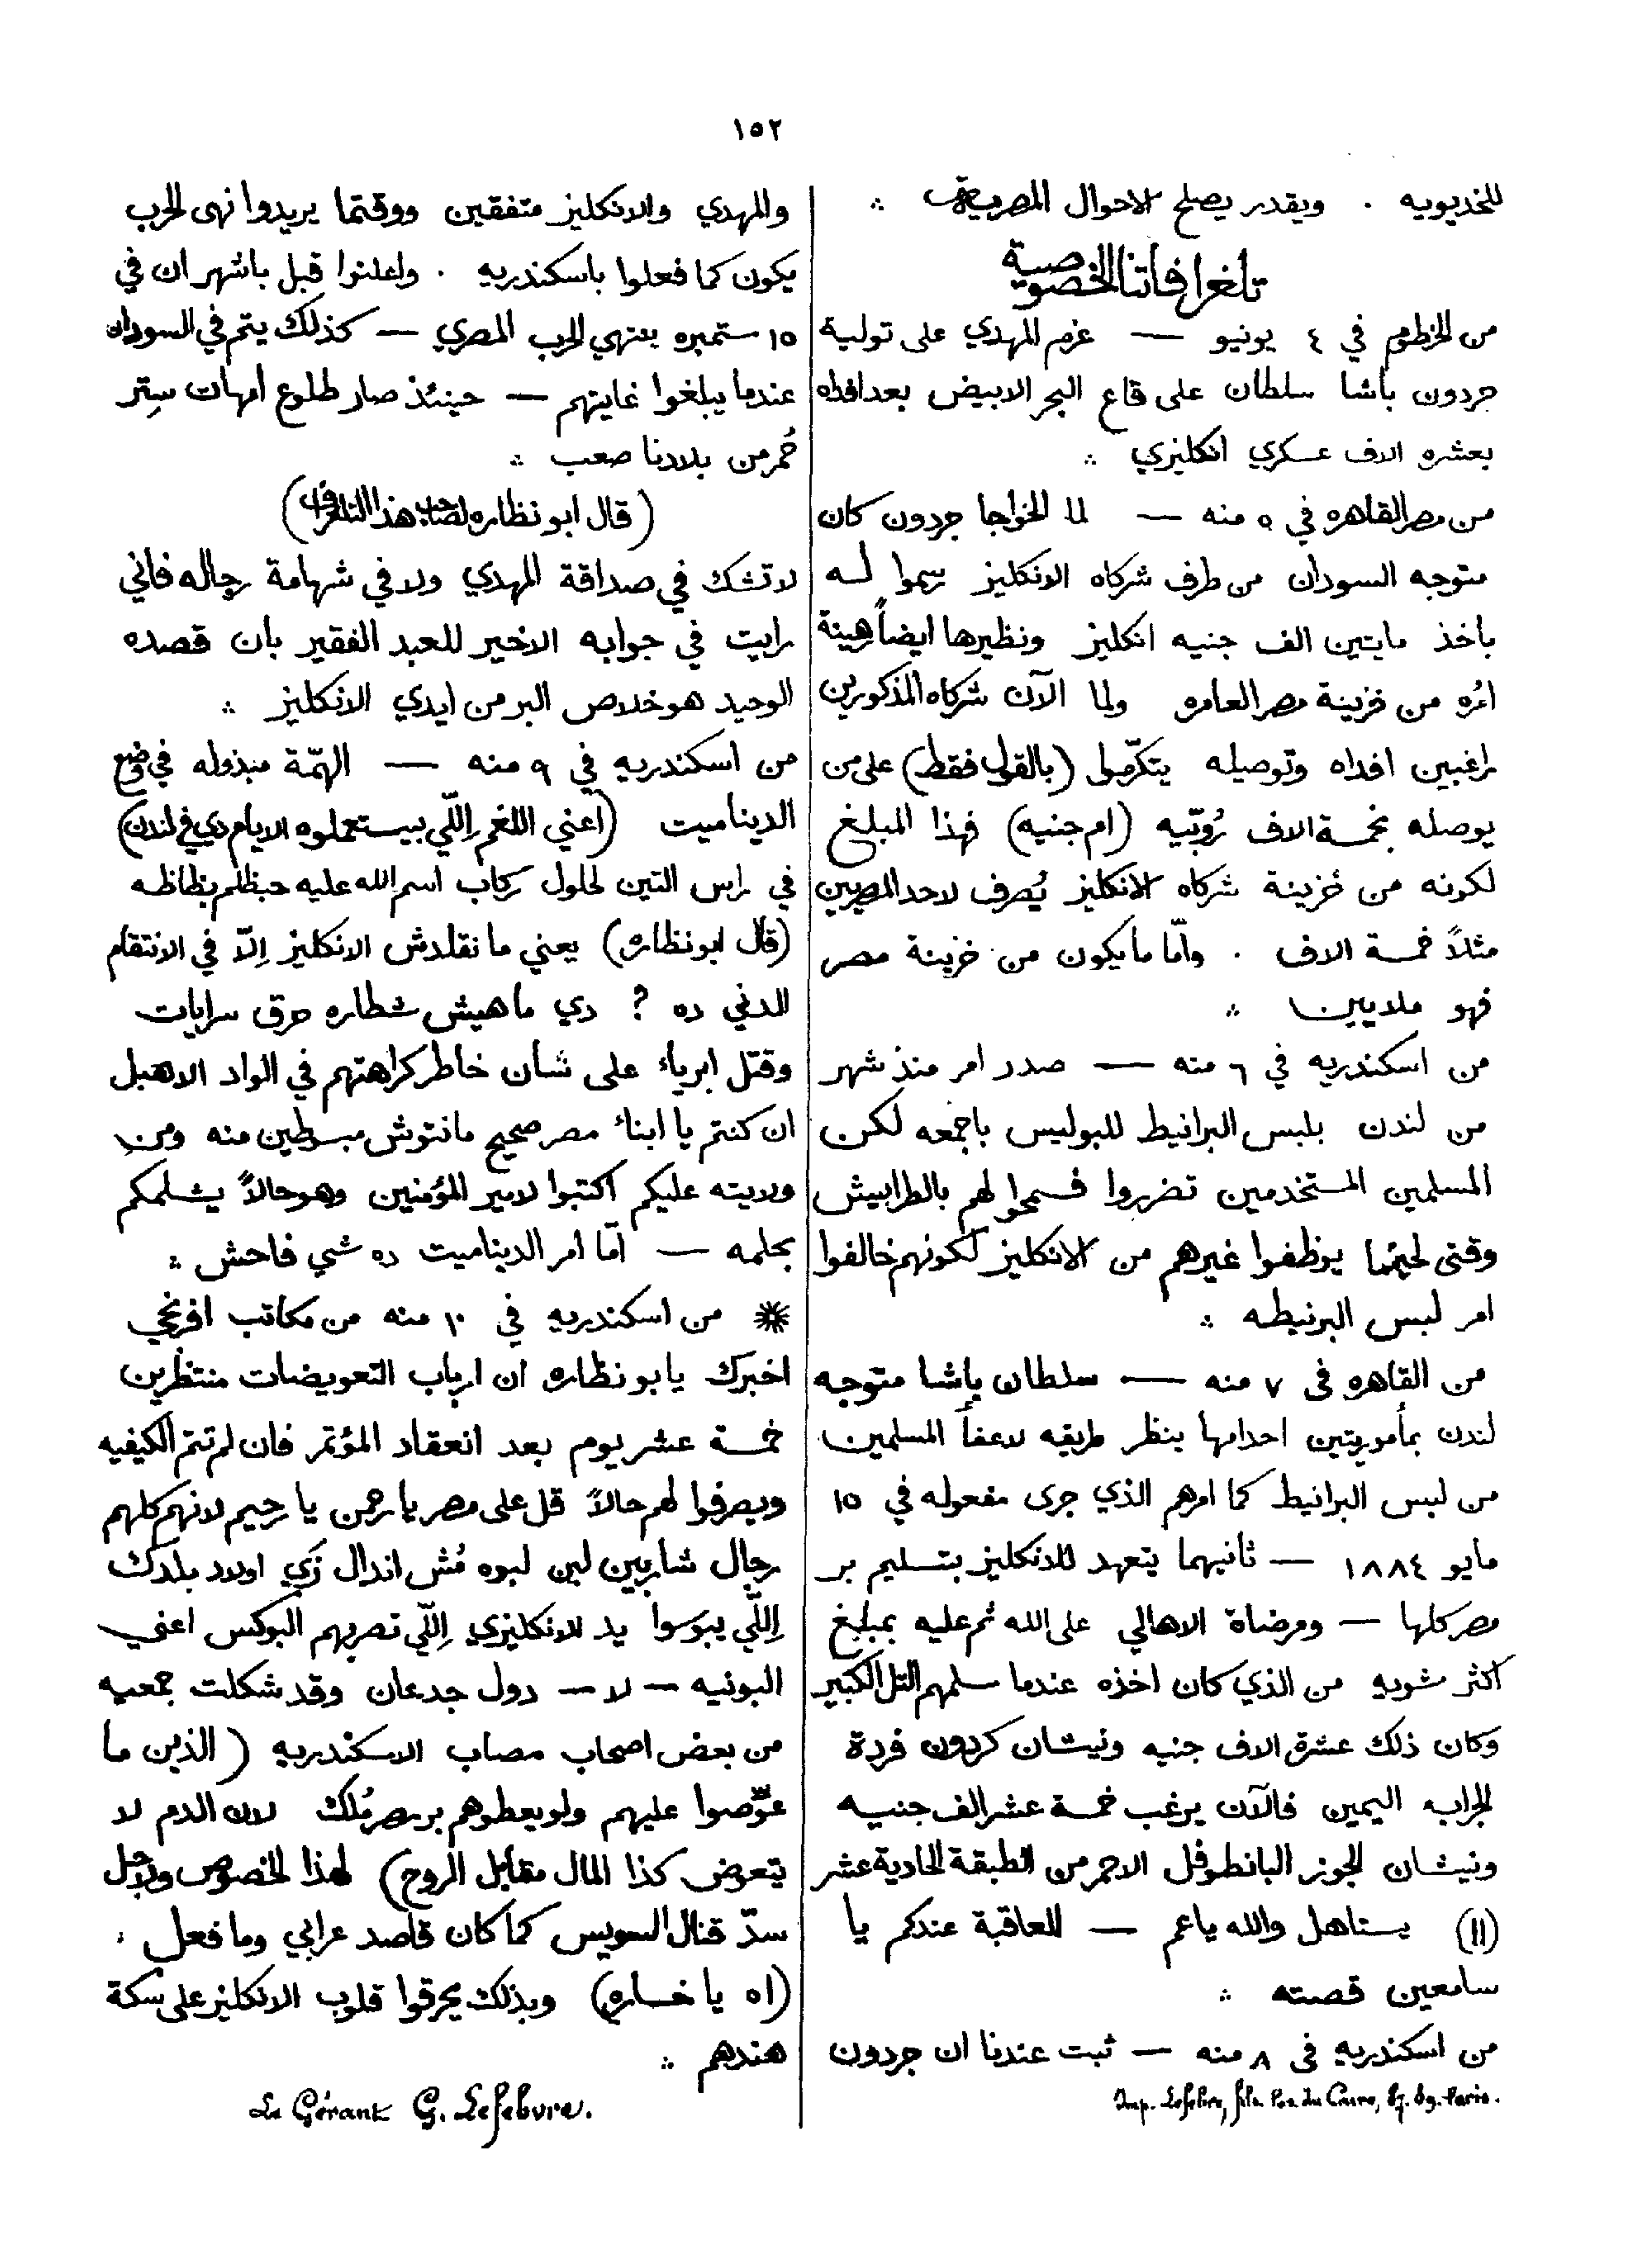 ١٥٢
للخديويه . ويقدر يصلح الاحوال المصريه ∴
تلغرافاتنا الخصوصية
من الخرطوم في ٤ يونيو — عزم المهدي على تولية
جردون باشا سلطان على قاع البحر الابيض بعد افداه
بعشره الاف عسكري انكليزي ∴
من مصر القاهره في ٥ منه — لما الخواجا جردون كان
متوجه السودان من طرف شركاه الانكليز رسموا له
باخذ مايتين الف جنيه انكليز ونظيرها ايضاً رهينة
امره من خزينة مصر العامره ولما الآن شركاه المذكورين
راغبين افداه وتوصيله يتكرّموا (بالقول فقط) على من
يوصله بخمسة الاف رُوبّيه (ام جنيه) فهذا المبلغ
لكونه من خزينة شركاه الانكليز يُصرف لاحد المصريين
مثلاً خمسة الاف . وامّا ما يكون من خزينة مصر
فهو ملايين ∴
من اسكندريه في ٦ منه — صدر امر منذ شهر
من لندن بلبس البرانيط للبوليس باجمعه لكن
المسلمين المستخدمين تضرروا فسمحوا لهم بالطرابيش
وقتى لحينما يوظفوا غيرهم من الانكليز لكونهم خالفوا
امر لبس البرنيطه ∴
من القاهره فى ٧ منه — سلطان باشا متوجه
لندن بمأموريتين احداهما ينظر طريقه لاعفأ المسلمين
من لبس البرانيط كما امرهم الذي جرى مفعوله في ١٥
مايو ١٨٨٤ — ثانيهما يتعهد للانكليز بتسليم بر
مصر كلها — ومرضاة الاهالي على الله ثم عليه بمبلغ
اكثر شويه من الذي كان اخذه عندما سلمهم التل الكبير
وكان ذلك عشرة الاف جنيه ونيشان كردون فردة
الجراب اليمين فالآن يرغب خمسة عشر الف جنيه
ونيشان الجوز البانطوفل الاحمر من الطبقة الحادية عشر
(١١) يستاهل والله ياعم — للعاقبة عندكم يا
سامعين قصته ∴
من اسكندريه فى ٨ منه — ثبت عندنا ان جردون
Imp. Lefebvre, du Caire, 87. 89. Paris.
والمهدي والانكليز متفقين ووقتما يريدوا نهى الحرب
يكون كما فعلوا باسكندريه . واعلنوا قبل باشهر ان في
١٥ ستمبره بنتهي الحرب المصري — كذلك يتم في السودان
عندما يبلغوا غايتهم — حينئذ صار طلوع امهات سِتر
حُمر من بلادنا صعب ∴
(قال ابو نظاره لصاحب هذا التلغراف)
لا تشك في صداقة المهدي ولا في شهامة رجاله فاني
رايت في جوابه الاخير للعبد الفقير بان قصده
الوحيد هو خلاص البر من ايدي الانكليز ∴
من اسكندريه في ٩ منه — الهمّة مبذوله في وضع
الديناميت (اعني اللغم اِللّي بيستعملوه الايام دي في لندن)
في راس التين لحلول ركاب اسم الله عليه حبظلم بظاظه
(قال ابو نظاره) يعني ما نقلدش الانكليز اِلاّ في الانتقام
الدني ده ? دي ماهيش شطاره حرق سرايات
وقتل ابرياء على شأن خاطر كراهتهم في الواد الاهبل
ان كنتم يا ابناء مصر صحيح مانتوش مبسوطين منه ومن
ولايته عليكم اكتبوا لامير المؤمنين وهو حالاً يشلمكم
بحلمه — امّا امر الديناميت ده شي فاحش ∴
※ من اسكندريه في ١٠ منه من مكاتب افرنجي
اخبرك يا بو نظاره ان ارباب التعويضات منتظرين
خمسة عشر يوم بعد انعقاد المؤتمر فان لم تتم الكيفيه
ويصرفوا لهم حالاً قل على مصر يا رحمن يا رحيم لانهم كلهم
رجال شاربين لبن لبوه مُش اندال زَي اولاد بلدك
اِللّي يبوسوا يد الانكليزي اِللّي تضربهم البوكس اعني
البونيه — لا — دول جدعان وقد شكلت جمعيه
من بعض اصحاب مصاب الاسكندريه (الذين ما
عوّضوا عليهم ولو يعطوهم بر مصر مُلك لان الدم لا
يتعوض كذا المال مقابل الروح) لهذا الخصوص ولاجل
سدّ قنال السويس كما كان قاصد عرابي وما فعل .
(اه يا خساره) وبذلك يحرقوا قلوب الانكليز على سكة
هندهم ∴
Le Gérant G. Lefebvre.